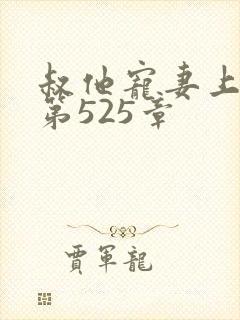 叔他寵妻上
第525章
賈軍龍